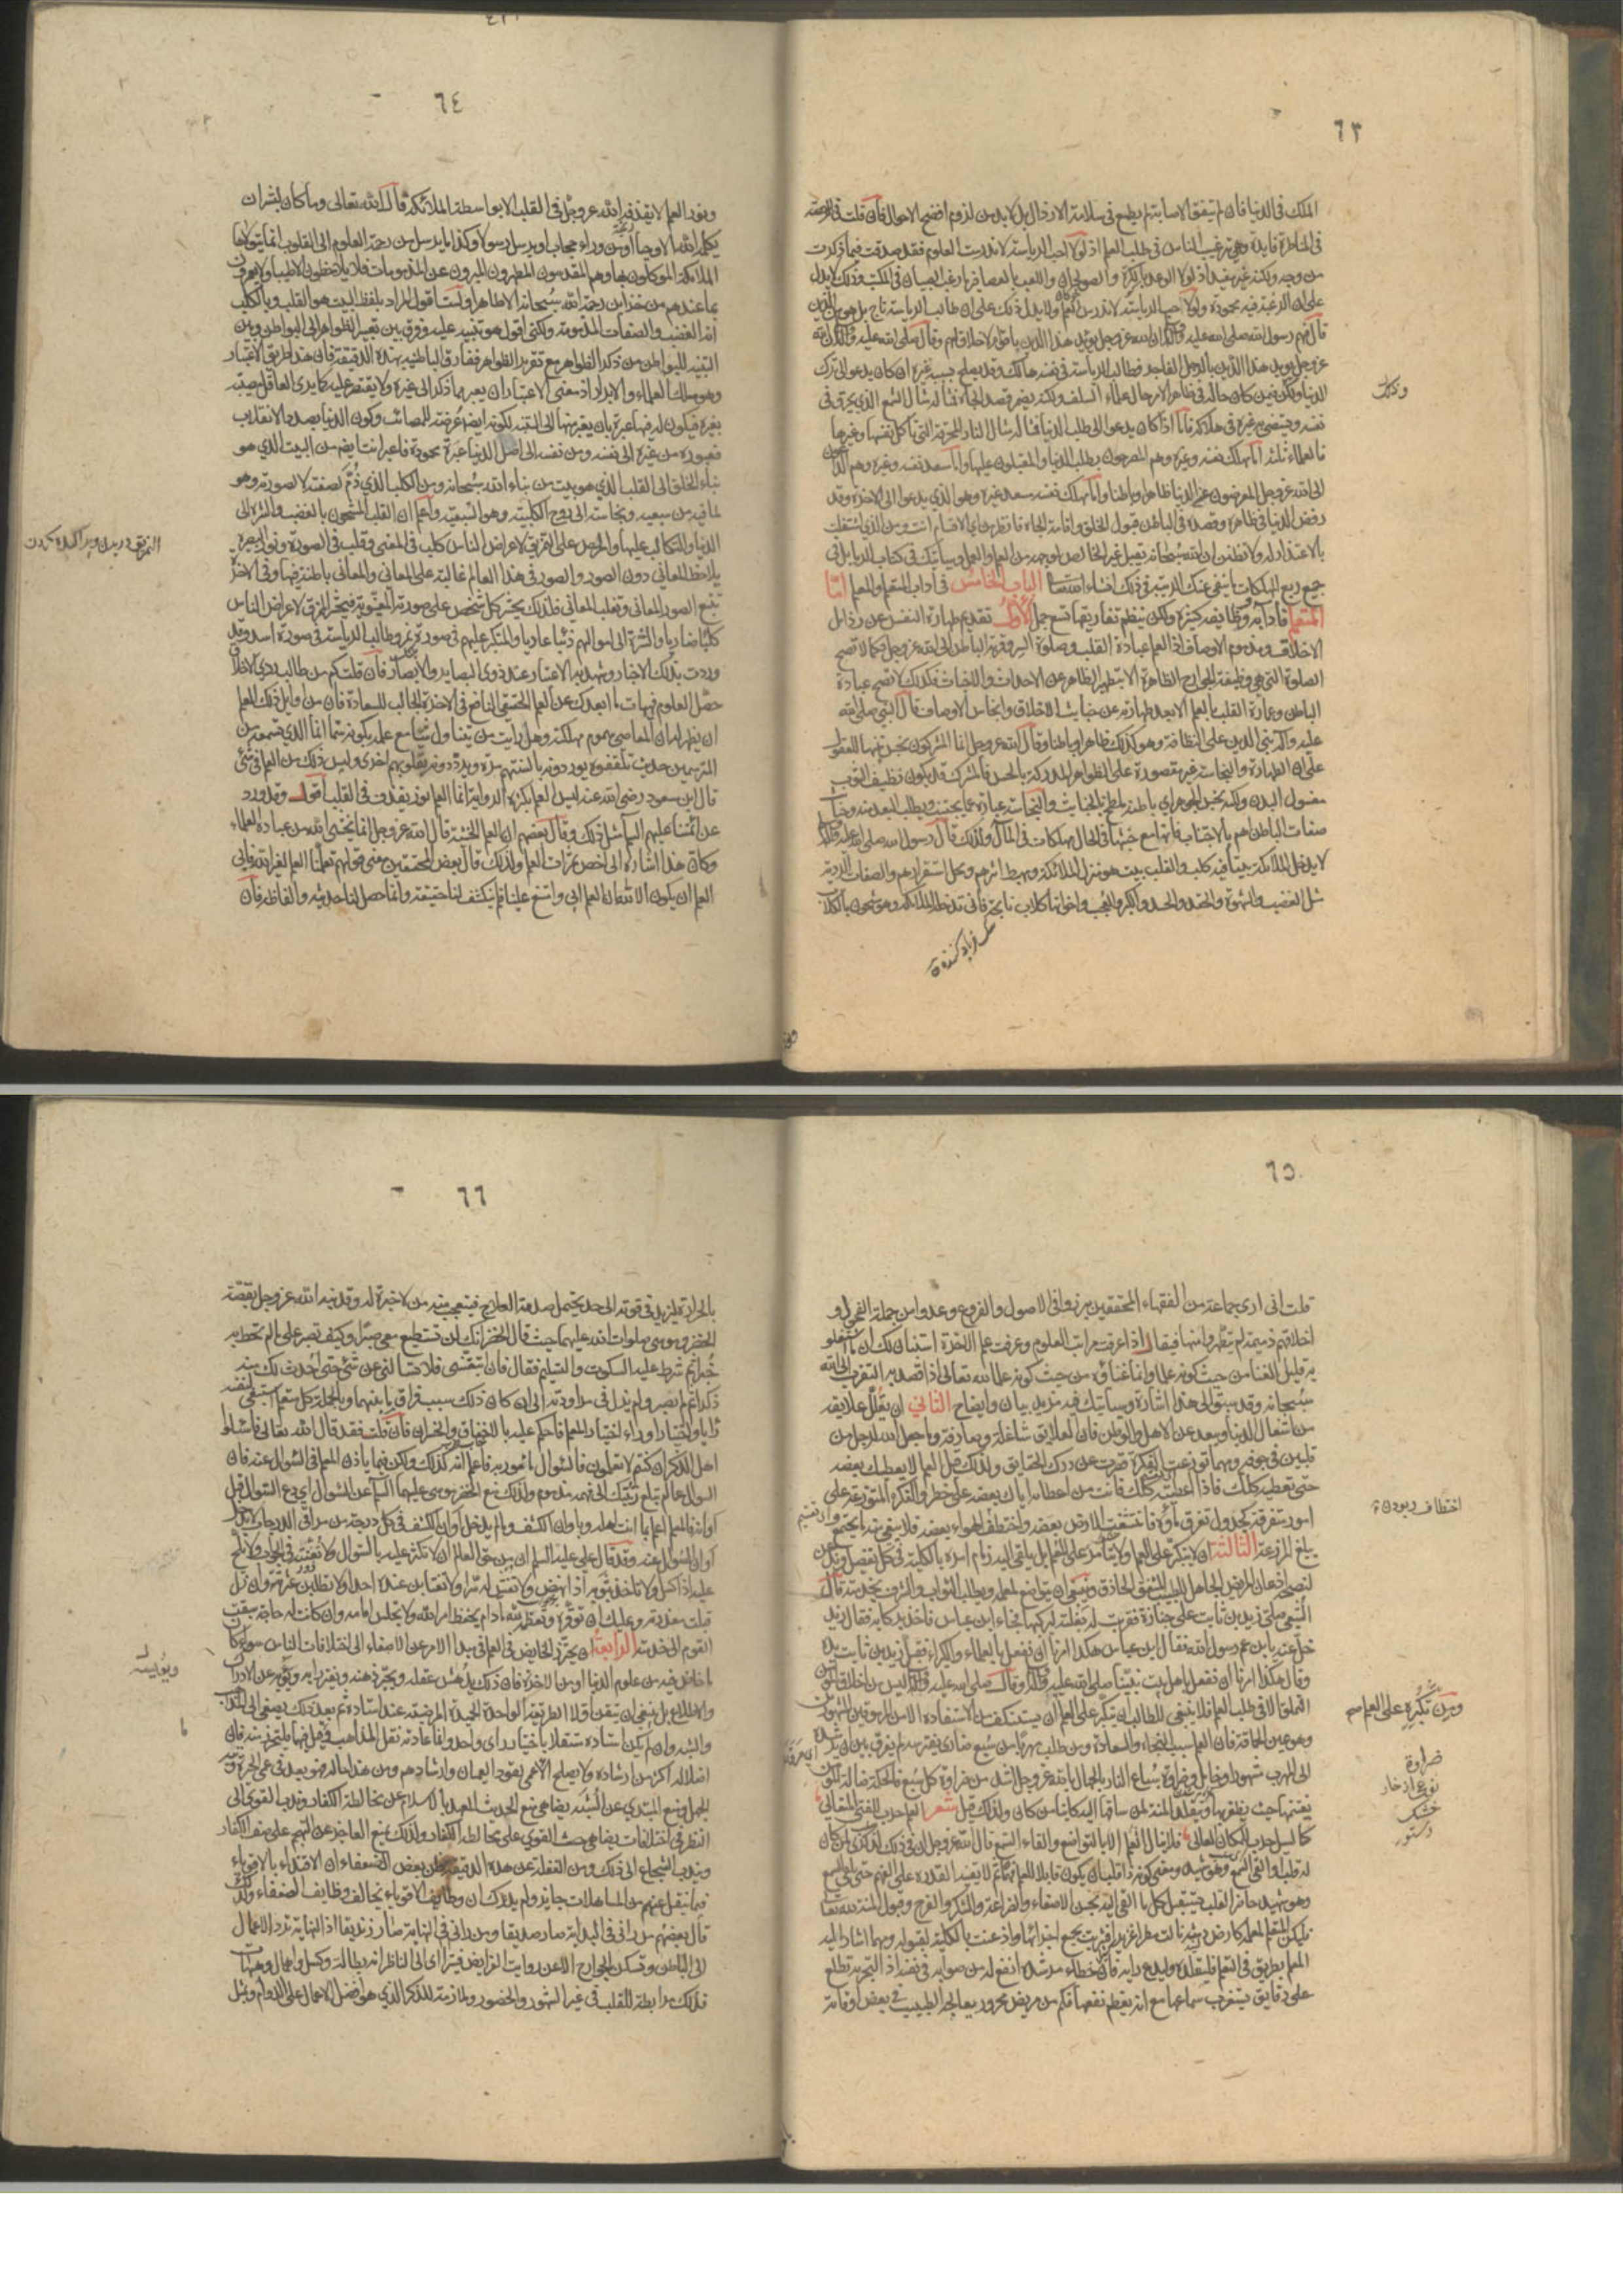 ٦٣
الملك في الدنيا فان لم يتفق الاصابة لم يطمع في سلامة الارذال بل لا بد من لزوم افضح الاحوال فان قلت في الرخصة
في المناظرة فايدة وهي ترغيب الناس في طلب العلم اذ لولا حب الرياسة لاندرست العلوم فقد صدقت فيما ذكرت
من وجه ولكنه غير مفيد اذ لولا الوعد بالكرة والصولجان واللعب بالعصافير ما رغب الصبيان في المكتب وذلك لا يدل
على ان الرغبة فيه محمودة ولولا حب الرياسة لاندرس العلم ولا يدل ذلك على ان طالب الرياسة ناج بل هو من الذين
قال فيهم رسول الله صلى الله عليه وآله ان الله عز وجل يؤيد هذا الدين باقوام لا خلاق لهم وقال صلى الله عليه وآله ان الله
عز وجل يؤيد هذا الدين بالرجل الفاجر فطالب الرياسة في نفسه هالك وقد يصلح بسببه غيره ان كان يدعو الى ترك
الدنيا وذلك فيمن كان حاله في ظاهر الامر حال علماء السلف ولكنه يضمر قصد الجاه فمثاله مثال الشمع الذي يحترق في
نفسه ويستضيء به غيره في هلاكه فاما اذا كان يدعو الى طلب الدنيا فمثاله مثال النار المحرقة التي تاكل نفسها وغيرها
فالعلماء ثلثة اما مهلك نفسه وغيره وهم المصرحون بطلب الدنيا والمقبلون عليها واما مسعد نفسه وغيره وهم الداعون
الى الله عز وجل المعرضون عن الدنيا ظاهرا وباطنا واما مهلك نفسه مسعد غيره وهو الذي يدعو الى الاخرة وقد
رفض الدنيا في ظاهره وقصده في الباطن قبول الخلق واقامة الجاه فانظر من اي الاقسام انت ومن الذي اشتغلت
بالاعتداد له ولا تظنن ان الله سبحانه يقبل غير الخالص لوجهه من العلم والعمل وسياتيك في كتاب الريا بل في
جميع ربع المهلكات ما ينفي عنك الريبة في ذلك انشاء الله تعالى الباب الخامس في آداب المتعلم والمعلم اما
المتعلم فآدابه ووظايفه كثيرة ولكن ينظم تفاريقها تسع جمل الاولى تقديم طهارة النفس عن رذائل
الاخلاق ومذموم الاوصاف اذ العلم عبادة القلب وصلوة السر وقربة الباطن الى الله عز وجل فكما لا تصح
الصلوة التي هي وظيفة الجوارح الظاهرة الا بتطهير الظاهر عن الاحداث والاخباث فكذلك لا تصح عبادة
الباطن وعمارة القلب بالعلم الا بعد طهارته عن خبايث الاخلاق وانجاس الاوصاف قال النبي صلى الله
عليه وآله بني الدين على النظافة وهو كذلك ظاهرا وباطنا وقال الله عز وجل انما المشركون نجس تنبيها للعقول
على ان الطهارة والنجاسة غير مقصورة على الظواهر المدركة بالحس فالمشرك قد يكون نظيف الثوب
مغسول البدن ولكنه نجس الجوهر اي باطنه ملطخ بالخبايث والنجاسة عبارة عما يجتنب ويطلب البعد منه وخبايث
صفات الباطن اهم بالاجتناب فانها مع خبثها في الحال مهلكات في المآل ولذلك قال رسول الله صلى الله عليه وآله
لا يدخل الملائكة بيتا فيه كلب والقلب بيت هو منزل الملائكة ومهبط اثرهم ومحل استقرارهم والصفات الردية
مثل الغضب والشهوة والحقد والحسد والكبر والعجب واخواتها كلاب نابحة فانى تدخله الملائكة وهو مشحون بالكلاب
وذلك
٦٤
ونور العلم لا يقذفه الله عز وجل في القلب الا بواسطة الملائكة قال الله تعالى وما كان لبشر ان
يكلمه الله الا وحيا او من وراء حجاب او يرسل رسولا وكذا ما يرسل من رحمة العلوم الى القلوب انما يتولاها
الملائكة الموكلون بها وهم المقدسون المطهرون المبرؤن عن المذمومات فلا يلاحظون الا طيبا ولا يعمرون
بما عندهم من خزاين رحمة الله سبحانه الا طاهرا ولست اقول المراد بلفظ البيت هو القلب وبالكلب
هو الغضب والصفات المذمومة ولكني اقول هو تنبيه عليه وفرق بين تعبير الظواهر الى البواطن وبين
التنبيه للبواطن من ذكر الظواهر مع تقرير الظواهر ففارق الباطنية بهذه الدقيقة فان هذا طريق الاعتبار
وهو مسلك العلماء والابرار اذ معنى الاعتبار ان يعبر مما ذكر الى غيره ولا يقتصر عليه كما يرى العاقل مصيبة
بغيره فيكون له فيها عبرة بان يعبر منها الى التنبه لكونه ايضا عرضة للمصائب وكون الدنيا بصدد الانقلاب
فعبوره من غيره الى نفسه ومن نفسه الى اصل الدنيا عبرة محمودة فاعبر انت ايضا من البيت الذي هو
بناء الخلق الى القلب الذي هو بيت من بناء الله سبحانه ومن الكلب الذي ذم لصفته لا لصورته وهو
لما فيه من سبعية ونجاسة الى روح الكلبية وهو السبعية واعلم ان القلب المشحون بالغضب والشره الى
الدنيا والتكالب عليها والحرص على التمزيق لاعراض الناس كلب في المعنى وقلب في الصورة ونور البصيرة
يلاحظ المعاني دون الصور والصور في هذا العالم غالبة على المعاني والمعاني باطنة فيها وفي الآخرة
تتبع الصور المعاني وتغلب المعاني فلذلك يحشر كل شخص على صورته المعنوية فيحشر الممزق لاعراض الناس
كلبا ضاريا والشره الى اموالهم ذئبا عاديا والمتكبر عليهم في صورة نمر وطالب الرياسة في صورة اسد وقد
وردت بذلك الاخبار وشهد به الاعتبار عند ذوي البصاير والابصار فان قلت كم من طالب ردي الاخلاق
حصل العلوم فهيهات ما ابعدك عن العلم الحقيقي النافع في الاخرة الجالب للسعادة فان من اوايل ذلك العلم
ان يظهر له ان المعاصي سموم مهلكة وهل رايت من يتناول سما مع علمه بكونه سما انما الذي تسمعه من
المترسمين حديث تلقفوه يوردونه بالسنتهم مرة ويرددونه بقلوبهم اخرى وليس ذلك من العلم في شئ
قال ابن مسعود رضي الله عنه ليس العلم بكثرة الرواية انما العلم نور يقذف في القلب اقول وقد ورد
عن ائمتنا عليهم السلام مثل ذلك وقال بعضهم ان العلم الخشية قال الله عز وجل انما يخشى الله من عباده العلماء
وكان هذا اشارة الى اخص ثمرات العلم ولذلك قال بعض المحققين معنى قولهم تعلمنا العلم لغير الله فابى
العلم ان يكون الا لله ان العلم ابى وامتنع علينا فلم ينكشف لنا حقيقته وانما حصل لنا حديثه والفاظه فان
٦٥
قلت اني ارى جماعة من الفقهاء المحققين برزوا في الاصول والفروع وعدوا من جملة الفحول و
اخلاقهم ذميمة لم يتطهروا منها فيقال اذا عرفت مراتب العلوم وعرفت علم الاخرة استبان لك ان ما اشتغلوا
به قليل الغناء من حيث كونه علما وانما غناؤه من حيث كونه عملا لله تعالى اذا قصد به التقرب الى الله
سبحانه وقد سبق الى هذا اشارة وسياتيك فيه مزيد بيان وايضاح الثاني ان يقلل علايقه
من اشغال الدنيا ويبعد عن الاهل والوطن فان العلايق شاغلة وصارفة وما جعل الله لرجل من
قلبين في جوفه ومهما توزعت الفكرة قصرت عن درك الحقايق ولذلك قيل العلم لا يعطيك بعضه
حتى تعطيه كلك فاذا اعطيته كلك فانت من اعطائه اياك بعضه على خطر والفكرة المتوزعة على
امور متفرقة كجدول تفرق ماؤه فانتشفت الارض بعضه واختطف الهواء بعضه فلا يبقى منه ما يجتمع
يبلغ المزرعة الثالثة ان لا يتكبر على العلم ولا يتامر على المعلم بل يلقى اليه زمام امره بالكلية في كل تفصيل ويذعن
لنصحه اذعان المريض الجاهل للطبيب المشفق الحاذق وينبغي ان يتواضع لمعلمه ويطلب الثواب والشرف بخدمته قال
الشعبي صلى زيد بن ثابت على جنازة فقربت له بغلته ليركبها فجاء ابن عباس فاخذ بركابه فقال زيد
خل عنه يا بن عم رسول الله فقال ابن عباس هكذا امرنا ان نفعل بالعلماء والكبراء فقبل زيد بن ثابت يده
وقال هكذا امرنا ان نفعل باهل بيت نبينا صلى الله عليه وآله وقال صلى الله عليه وآله ليس من اخلاق المؤمن
التملق الا في طلب العلم فلا ينبغي للطالب ان يتكبر على العلم ان يستنكف من الاستفادة الا من المرموقين المشهورين
وهو عين الحماقة فان العلم سبب النجاة والسعادة ومن طلب مهربا من سبع ضاري يفترسه لم يفرق بين ان يرشده
الى المهرب مشهور او خامل وضراوة سباع النار بالجهال بالله عز وجل اشد من ضراوة كل سبع فالحكمة ضالة المؤمن
يغتنمها حيث يظفر بها ويتقلد المنة لمن ساقها اليه كائنا من كان ولذلك قيل شعر العلم حرب للفتى المتعالي
كالسيل حرب للمكان العالي فلا ينال العلم الا بالتواضع والقاء السمع قال الله عز وجل ان في ذلك لذكرى لمن كان
له قلب او القى السمع وهو شهيد ومعنى كونه ذا قلب ان يكون قابلا للعلم فهما ثم لا يفيد القدرة على الفهم حتى يلقي السمع
وهو شهيد حاضر القلب ليستقبل كل ما القي اليه بحسن الاصغاء والضراعة والشكر والفرح وقبول المنة لله تعالى
فليكن المتعلم لمعلمه كارض دمثة نالت مطرا غزيرا فشربت بجميع اجزائها واذعنت بالكلية لقبوله ومهما اشار اليه
المعلم بطريق في التعلم فليقلده وليدع رايه فان خطاء مرشده انفع له من صوابه في نفسه اذ التجربة تطلع
على دقايق يستغرب سماعها مع انه يعظم نفعها فكم من مريض محرور يعالجه الطبيب في بعض اوقاته
اختطاف ربودن
ومن تكبره على العلم
ضراوة
٦٦
بالحرارة ليزيد في قوته الى حد يحتمل صدمة العلاج فيتعجب منه من لا خبرة له وقد نبه الله عز وجل بقصة
الخضر وموسى صلوات الله عليهما حيث قال الخضر انك لن تستطيع معي صبرا وكيف تصبر على ما لم تحط به
خبرا ثم شرط عليه السكوت والتسليم فقال فان اتبعتني فلا تسالني عن شئ حتى احدث لك منه
ذكرا ثم لم يصبر ولم يزل في مراودته الى ان كان ذلك سبب فراق ما بينهما وبالجملة كل متعلم استبقى لنفسه
رايا واختيارا وراء اختيار المعلم فاحكم عليه بالاخفاق والخسران فان قلت فقد قال الله تعالى فاسئلوا
اهل الذكر ان كنتم لا تعلمون فالسؤال مامور به فاعلم انه كذلك ولكن فيما ياذن المعلم في السؤال عنه فان
السؤال عما لم تبلغ رتبتك الى فهمه مذموم ولذلك منع الخضر موسى عليهما السلام عن السؤال اي دع السؤال قبل
اوانه فالمعلم اعلم بما انت اهل له وباوان الكشف وما لم يدخل اوان الكشف في كل درجة من مراقي الدرجات لا يدخل
اوان السؤال عنه وقد قال علي عليه السلام ان من حق العالم ان لا تكثر عليه بالسؤال ولا تعنته في الجواب ولا تلح
عليه اذا كسل ولا تاخذ بثوبه اذا نهض ولا تفشي له سرا ولا تغتابن عنده احدا ولا تطلبن عثرته وان زل
قبلت معذرته وعليك ان توقره وتعظمه لله ما دام يحفظ امر الله ولا تجلس امامه وان كانت له حاجة سبقت
القوم الى خدمته الرابعة ان يحترز الخايض في العلم في مبدأ الامر عن الاصغاء الى اختلافات الناس سواء كان
ما خاض فيه من علوم الدنيا او من الاخرة فان ذلك يدهش عقله ويحير ذهنه ويفتر رايه ويؤيسه عن الادراك
والاطلاع بل ينبغي ان يتقن اولا الطريقة الواحدة الحميدة المرضية عند استاده ثم بعد ذلك يصغي الى المذاهب
والشبه وان لم يكن استاده مستقلا باختيار راي واحد وانما عادته نقل المذاهب وما قيل فيها فليحترز منه فان
اضلاله اكثر من ارشاده ولا يصلح الاعمى لقود العميان وارشادهم ومن هذا حاله فهو بعد في عمى الحيرة وتيه
الجهل ومنع المبتدي عن الشبه يضاهي منع الحديث العهد بالاسلام عن مخالطة الكفار وندب القوي الى
النظر في اختلافات يضاهي حث القوي على مخالطة الكفار ولذلك يمنع العاجز عن التهجم على صف الكفار
ويندب الشجاع الى ذلك ومن الغفلة عن هذه الدقيقة ظن بعض الضعفاء ان الاقتداء بالاقوياء
فيما ينقل عنهم من المساهلات جايز ولم يدرك ان وظايف الاقوياء يخالف وظايف الضعفاء ولذلك
قال بعضهم من راني في البداية صار صديقا ومن راني في النهاية صار زنديقا اذ النهاية ترد الاعمال
الى الباطن وتسكن الجوارح الا عن رواتب الفرايض فيتراى الى الناظر انه بطالة وكسل واهمال وهيهات
فذلك مرابطة للقلب في عين الشهود والحضور وملازمة للذكر الذي هو افضل الاعمال على الدوام ومثل
ويؤيسه